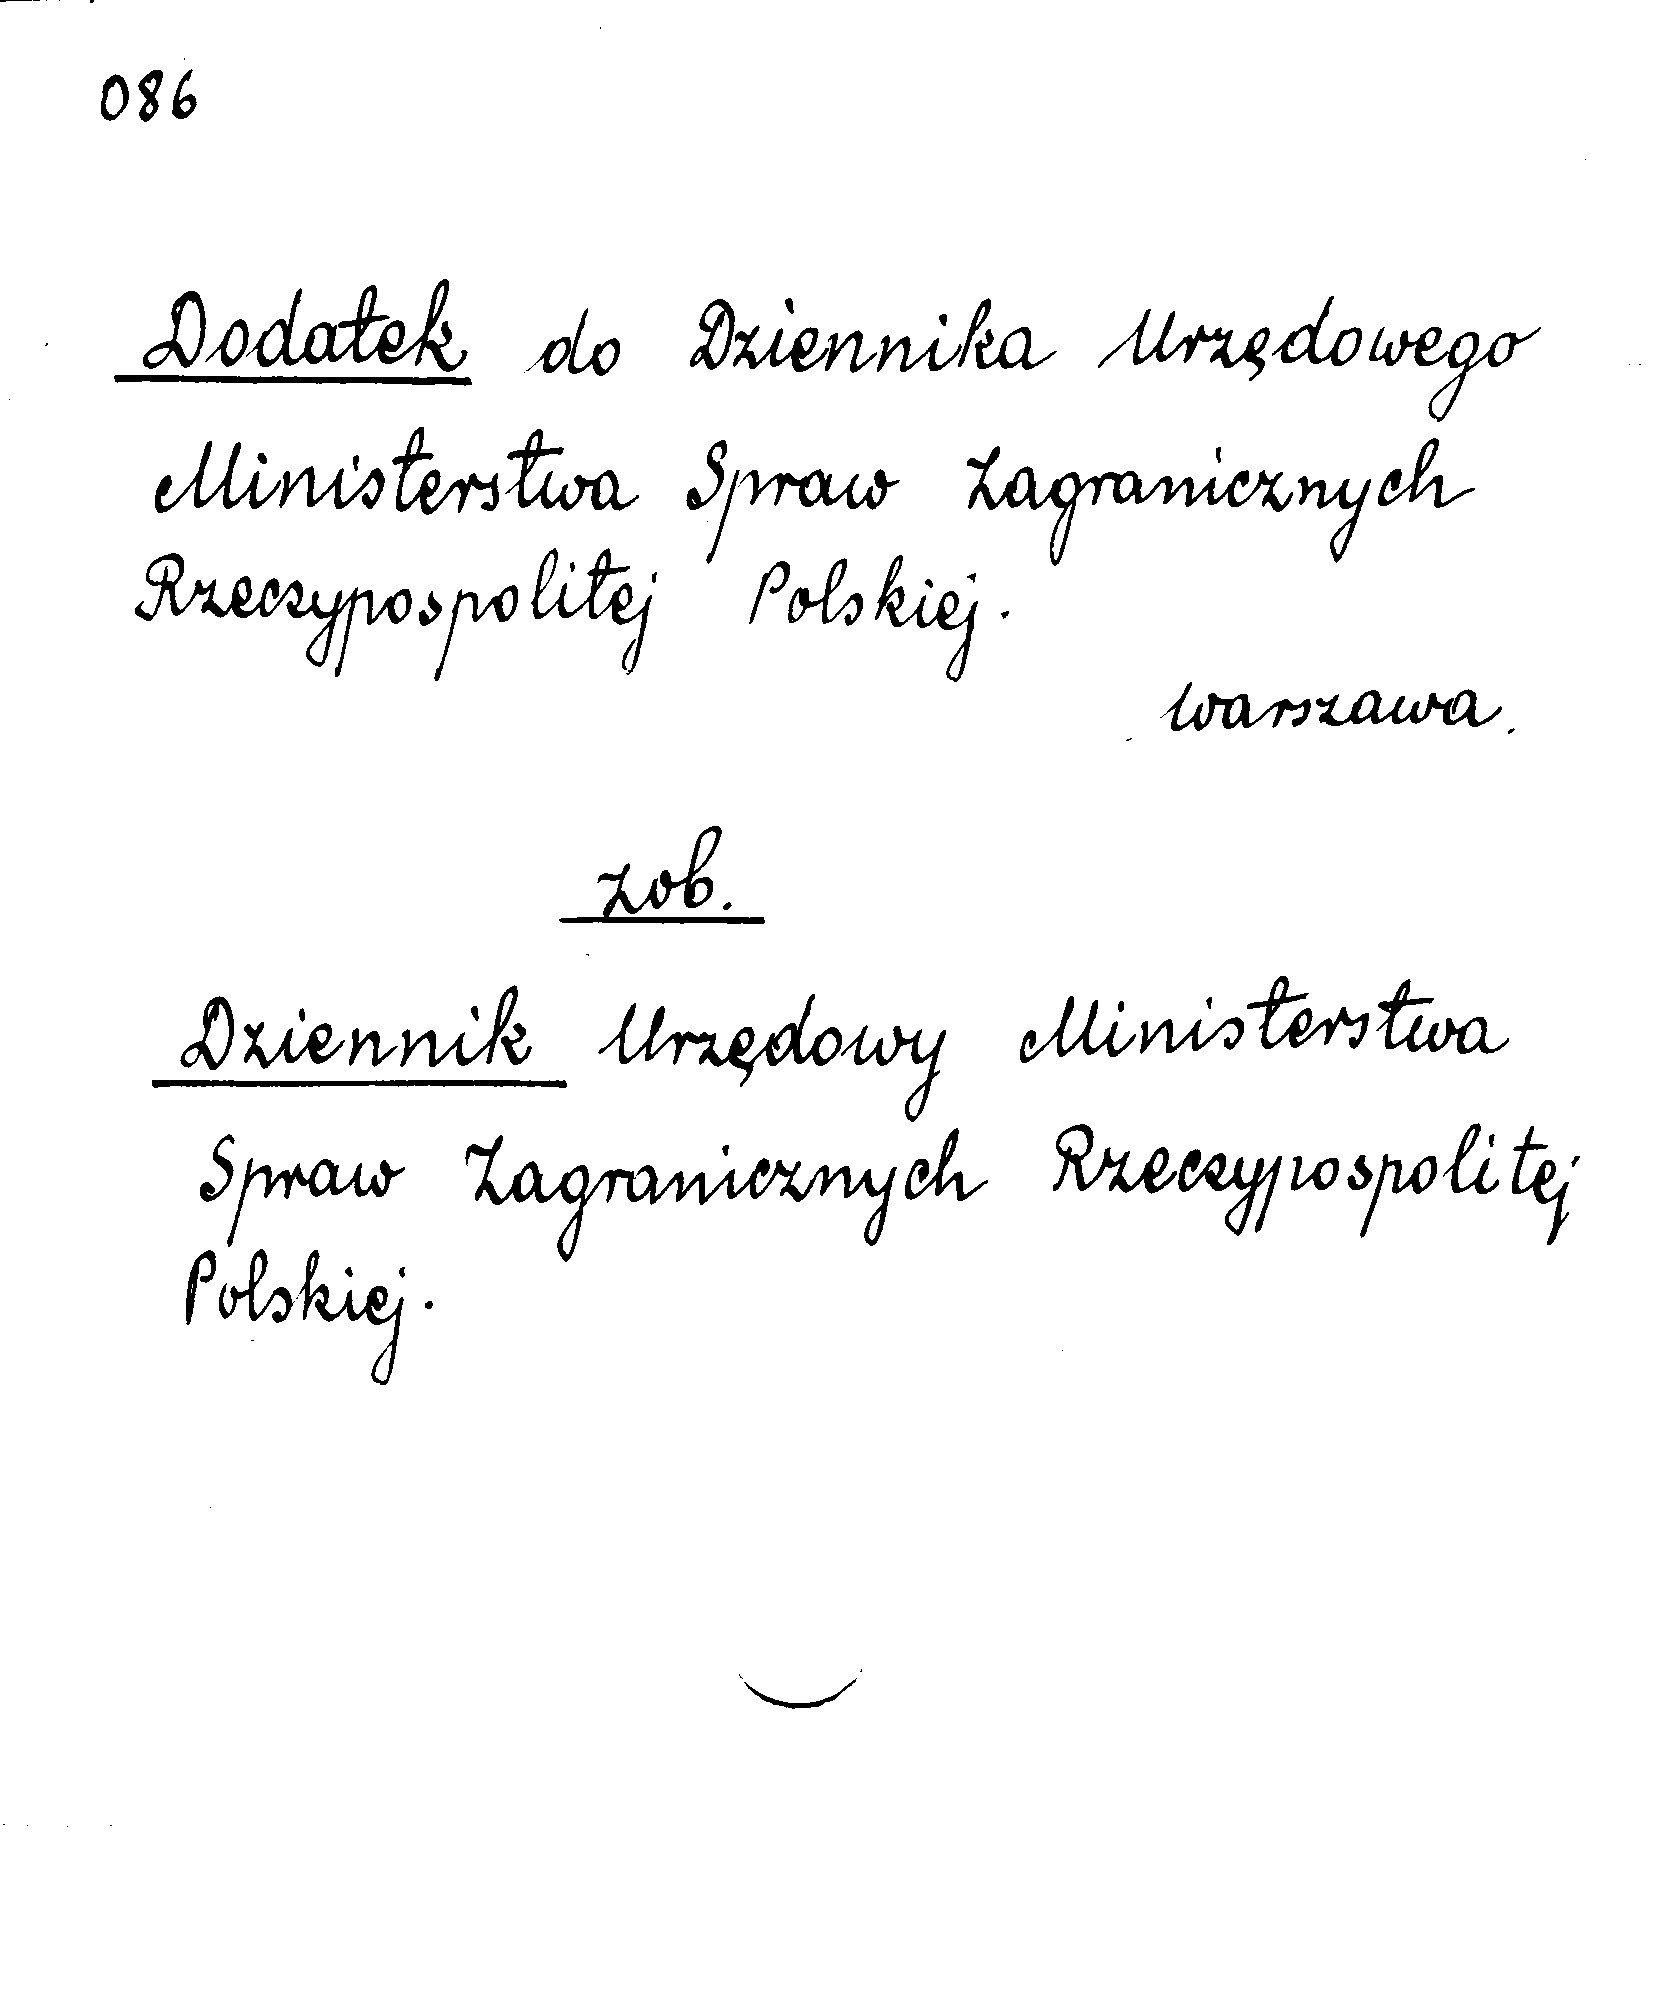 086
Dodatek do Dziennika Urzędowego
Ministerstwa Spraw Zagranicznych
Rzeczypospolitej Polskiej.
Warszawa.
zob.
Dziennik Urzędowy Ministerstwa
Spraw Zagranicznych Rzeczypospolitej
Polskiej.